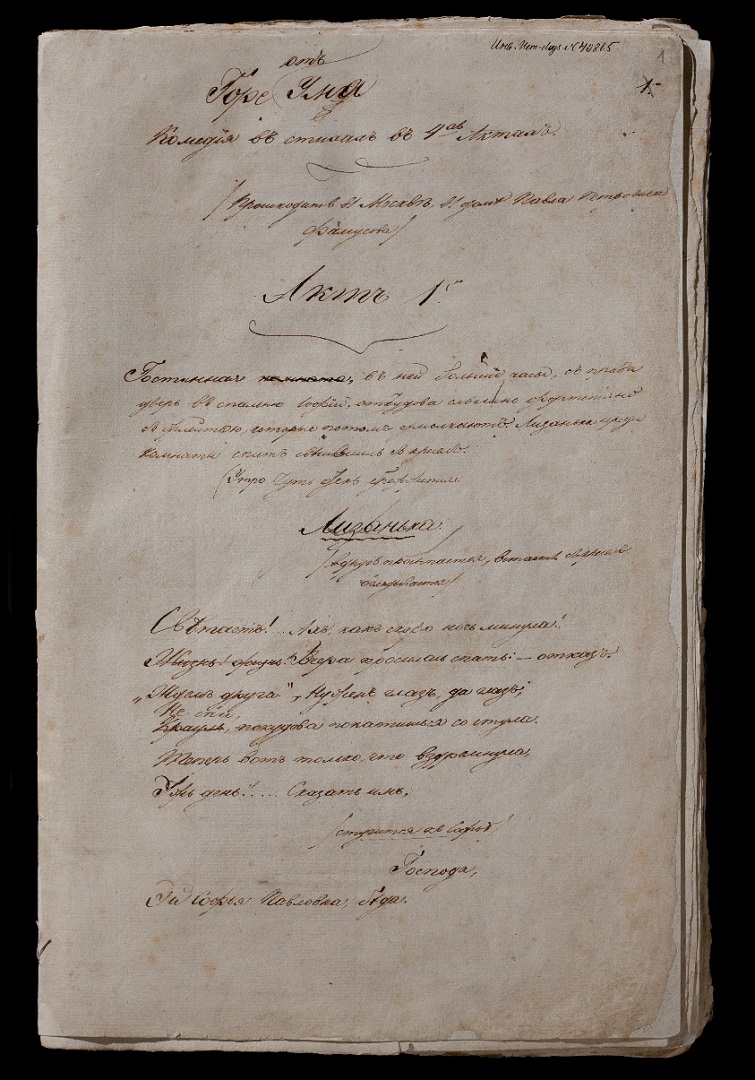 Инв. Ист-Лиp. N 70815
1
1.
отъ
Горе Ума
Комедія въ стихахъ въ 4хъ Актахъ.
/Происходитъ въ Москвѣ, въ домѣ Павла
Фамусова/
Актъ 1й
Гостинная комната, въ ней большіе часы, съ права
дверь въ спальню Софіи, откудова слышно фортопіяно
съ флейтою, которые потомъ умолкаютъ. Лизанька среди
комнаты спитъ свѣсившись съ креселъ.
(Утро чуть день брежжится
Лизанька
/вдругъ просыпается, встаетъ съ креселъ
оглядывается/
Свѣтаетъ!... Ахъ, какъ скоро ночь минула!
Вчера просилась спать: – отказъ.
„Ждемъ друга“, Нуженъ глазъ, да глазъ,
Не спи,
покудова покатишься со стула.
Теперь вотъ только, что вздремнула,
Ужъ день!.... Сказать имъ,
/стучится къ Софьѣ/
Господа,
Эй Софья Павловна, бѣда.